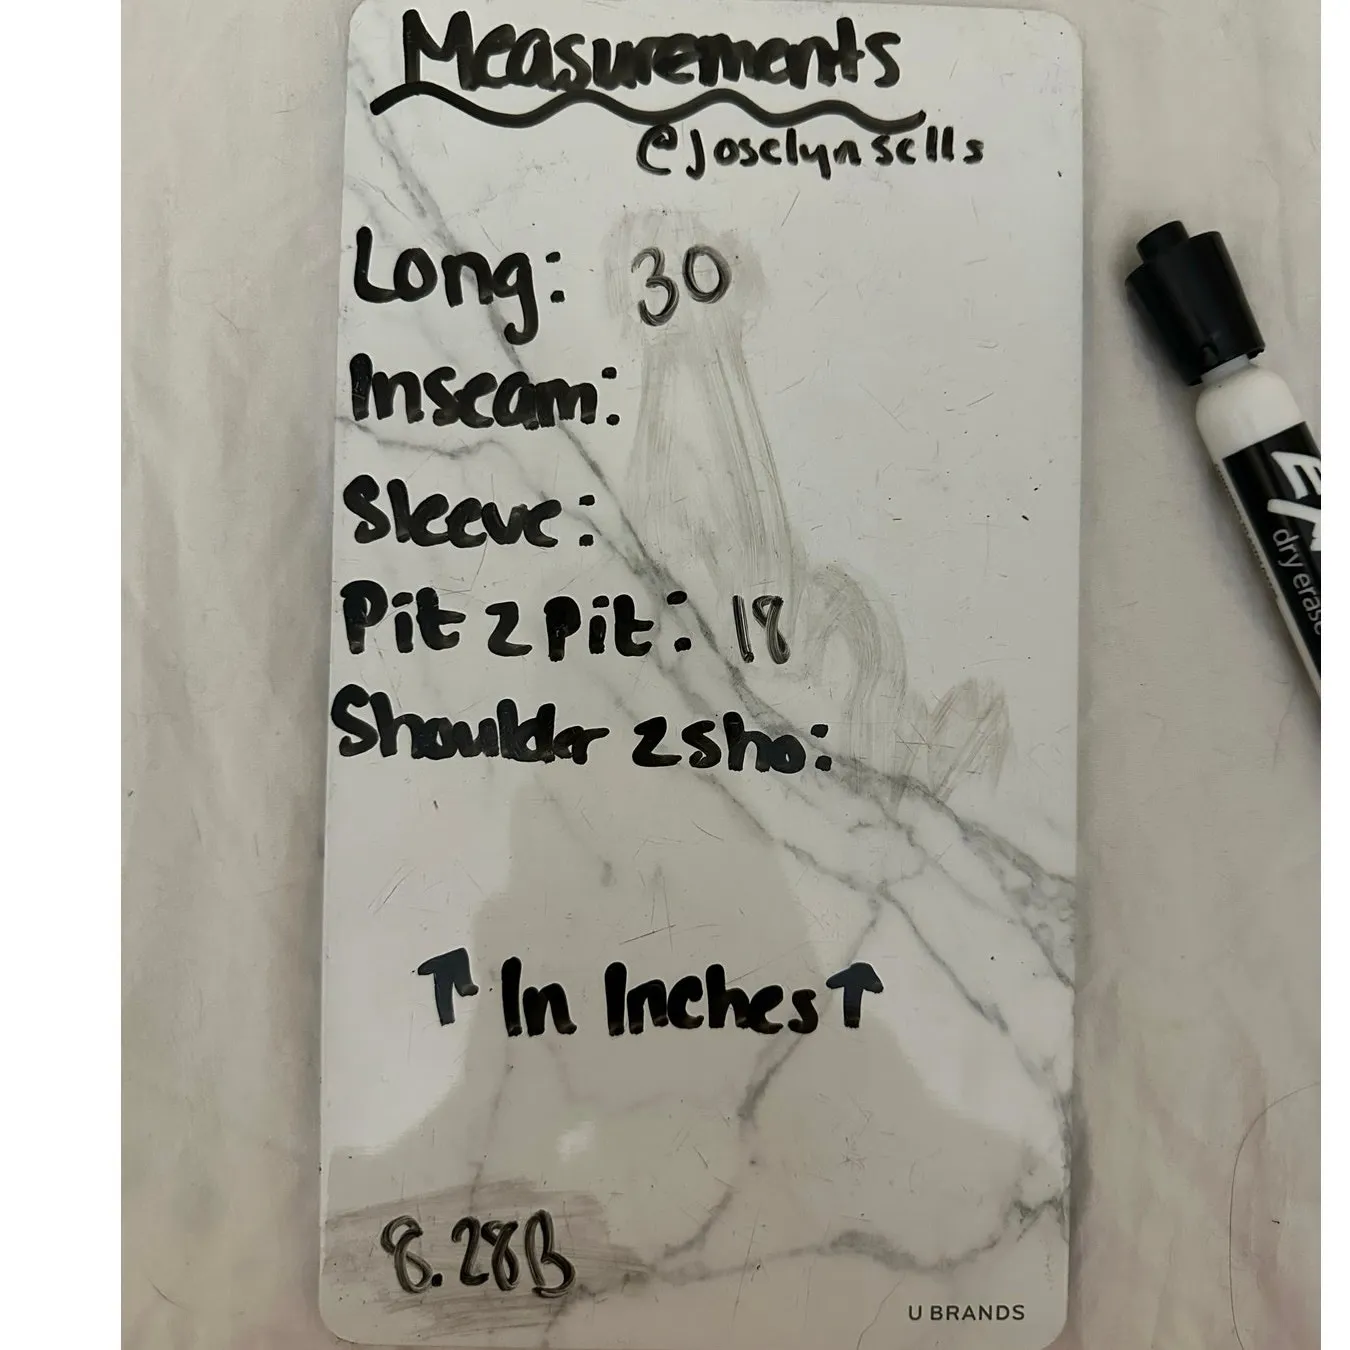 Measurements
@joselynsells
Long: 30
Inseam:
Sleeve:
Pit 2 pit: 18
Shoulder 2 sho:
↑ In Inches ↑
8.28B
U BRANDS
dry erase